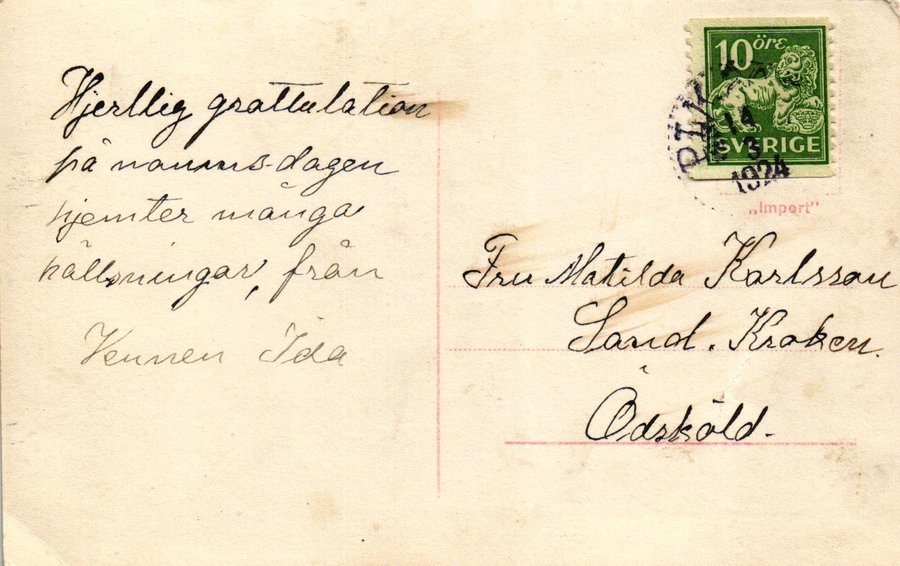 Hjertlig grattulation
på namns-dagen
hjemter många
hälsningar, från
Vennen Ida
10 öre
SVERIGE
14
3
1924
„Import"
Fru Matilda Karlsson
Sand. Kroken.
Ödsköld.